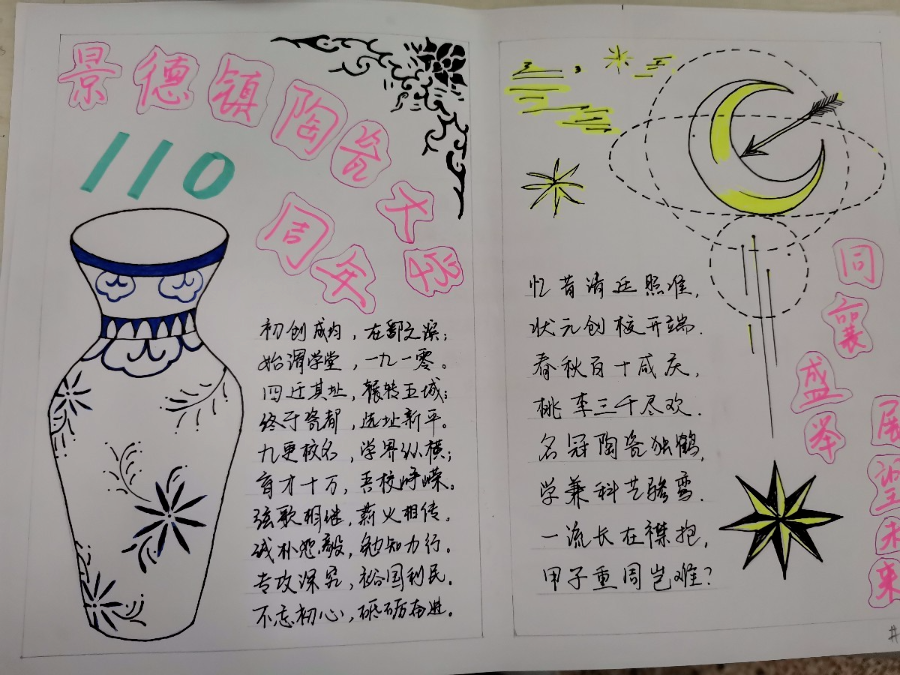 景德镇陶瓷大学
110
周年
初创成均，在鄱之滨；
始谓学堂，一九一零。
四迁其址，辗转五城；
终于瓷都，选址新平。
九更校名，学界纵横；
育才十万，吾校峥嵘。
弦歌相继，薪火相传。
诚朴恕毅，勉知力行。
专攻深究，裕国利民。
不忘初心，砥砺奋进。
忆昔清廷照准，
状元创校开端.
春秋百十咸庆，
桃李三千尽欢.
名冠陶瓷独鹤，
学兼科艺骖鸾.
一流长在襟抱，
甲子重周岂难？
同襄
盛举
展望未来